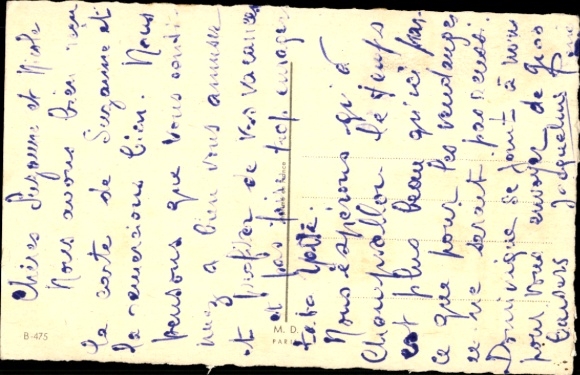 Chères Suzanne et Nicole
Nous avons bien reçu
la carte de Suzanne et
la remercions bien. Nous
pensons que vous conti-
nuez à bien vous amuser
et profiter de vos vacances
et pas trop
Nous espérons qu'à
Champvallon le temps
est plus beau qu'ici par-
ce que pour les vendanges
ce ne serait pas
Dominique se joint à nous
pour vous envoyer de gros
baisers Jacqueline
B-475
M. D.
PARIS